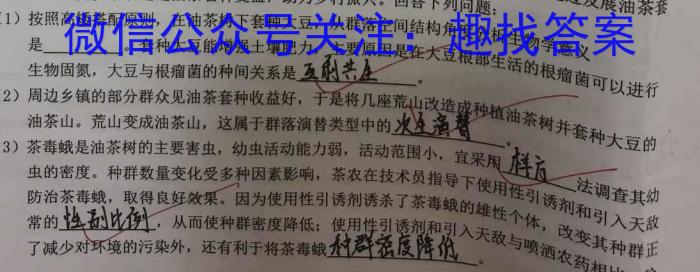 发展油茶套
回答下列问题：
(1)按照高矮配原则，在油茶树下套种大豆，从群落空间结构角度
微信公众号关注：趣找答案
是 套种大豆能增强土壤肥力，主要原因是在大豆根部生活的根瘤菌可以进行
生物固氮，大豆与根瘤菌的种间关系是互利共生。
(2)周边乡镇的部分群众见油茶套种收益好，于是将几座荒山改造成种植油茶树并套种大豆的
油茶山。荒山变成油茶山，这属于群落演替类型中的次生演替。
(3)茶毒蛾是油茶树的主要害虫，幼虫活动能力弱，活动范围小，宜采用样方法调查其幼
虫的密度。种群数量变化受多种因素影响，茶农在技术员指导下使用性引诱剂和引入天敌
防治茶毒蛾，取得良好效果。因为使用性引诱剂诱杀了茶毒蛾的雄性个体，改变其种群正
常的性别比例，从而使种群密度降低；使用性引诱剂和引入天敌与喷洒农药相比，除
了减少对环境的污染外，还有利于将茶毒蛾种群密度降低。